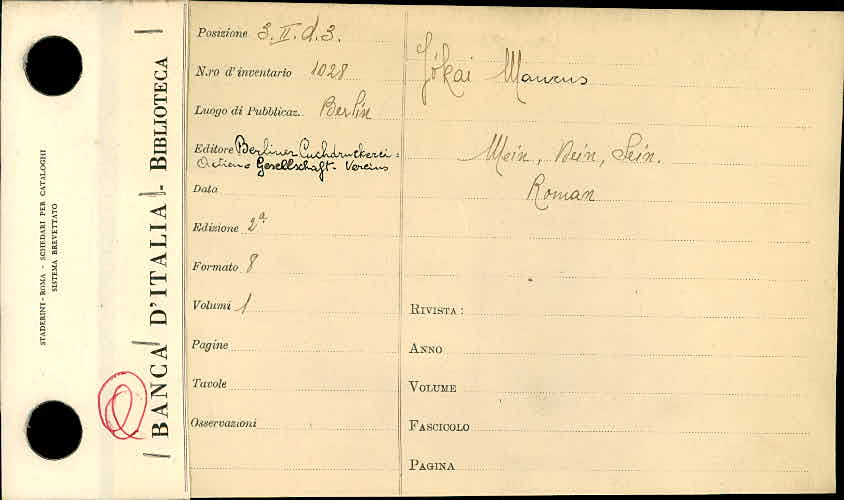 STADERINI - ROMA - SCHEDARI PER CATALOGHI
SISTEMA BREVETTATO
BANCA D'ITALIA - BIBLIOTECA
Posizione 3. II. d. 3.
N.ro d'inventario 1028
Luogo di Pubblicaz. Berlin
Editore Berliner Buchdruckerei =
Actien = Gesellschaft. Vereins
Data
Edizione 2ª
Formato 8
Volumi 1
Pagine
Tavole
Osservazioni
Jókai Maurus
Mein, Dein, Sein.
Roman
RIVISTA :
ANNO
VOLUME
FASCICOLO
PAGINA